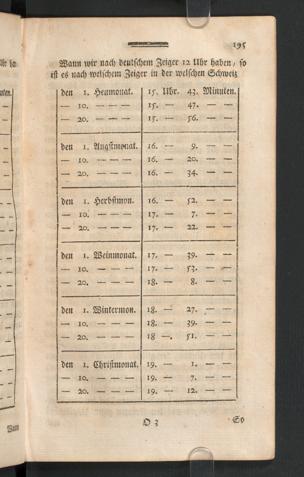 195
Wann wir nach deutschem Zeiger 12 Uhr haben, so
ist es nach welschem Zeiger in der welschen Schweiz
den 1. Heumonat. 15. Uhr. 43. Minuten.
— 10. — — — 15. — 47. — —
— 20. — — — 15. — 56. — —
den 1. Augstmonat. 16. — 9. — —
— 10. — — — 16. — 20. — —
— 20. — — — 16. — 34. — —
den 1. Herbstmon. 16. — 52. — —
— 10. — — — 17. — 7. — —
— 20. — — — 17. — 22. — —
den 1. Weinmonat. 17. — 39. — —
— 10. — — — 17. — 53. — —
— 20. — — — 18. — 8. — —
den 1. Wintermon. 18. — 27. — —
— 10. — — — 18. — 39. — —
— 20. — — — 18 —. 51. — —
den 1. Christmonat. 19. — 1. — —
— 10. — — — 19. — 7. — —
— 20. — — — 19. — 12. — —
O 3 So